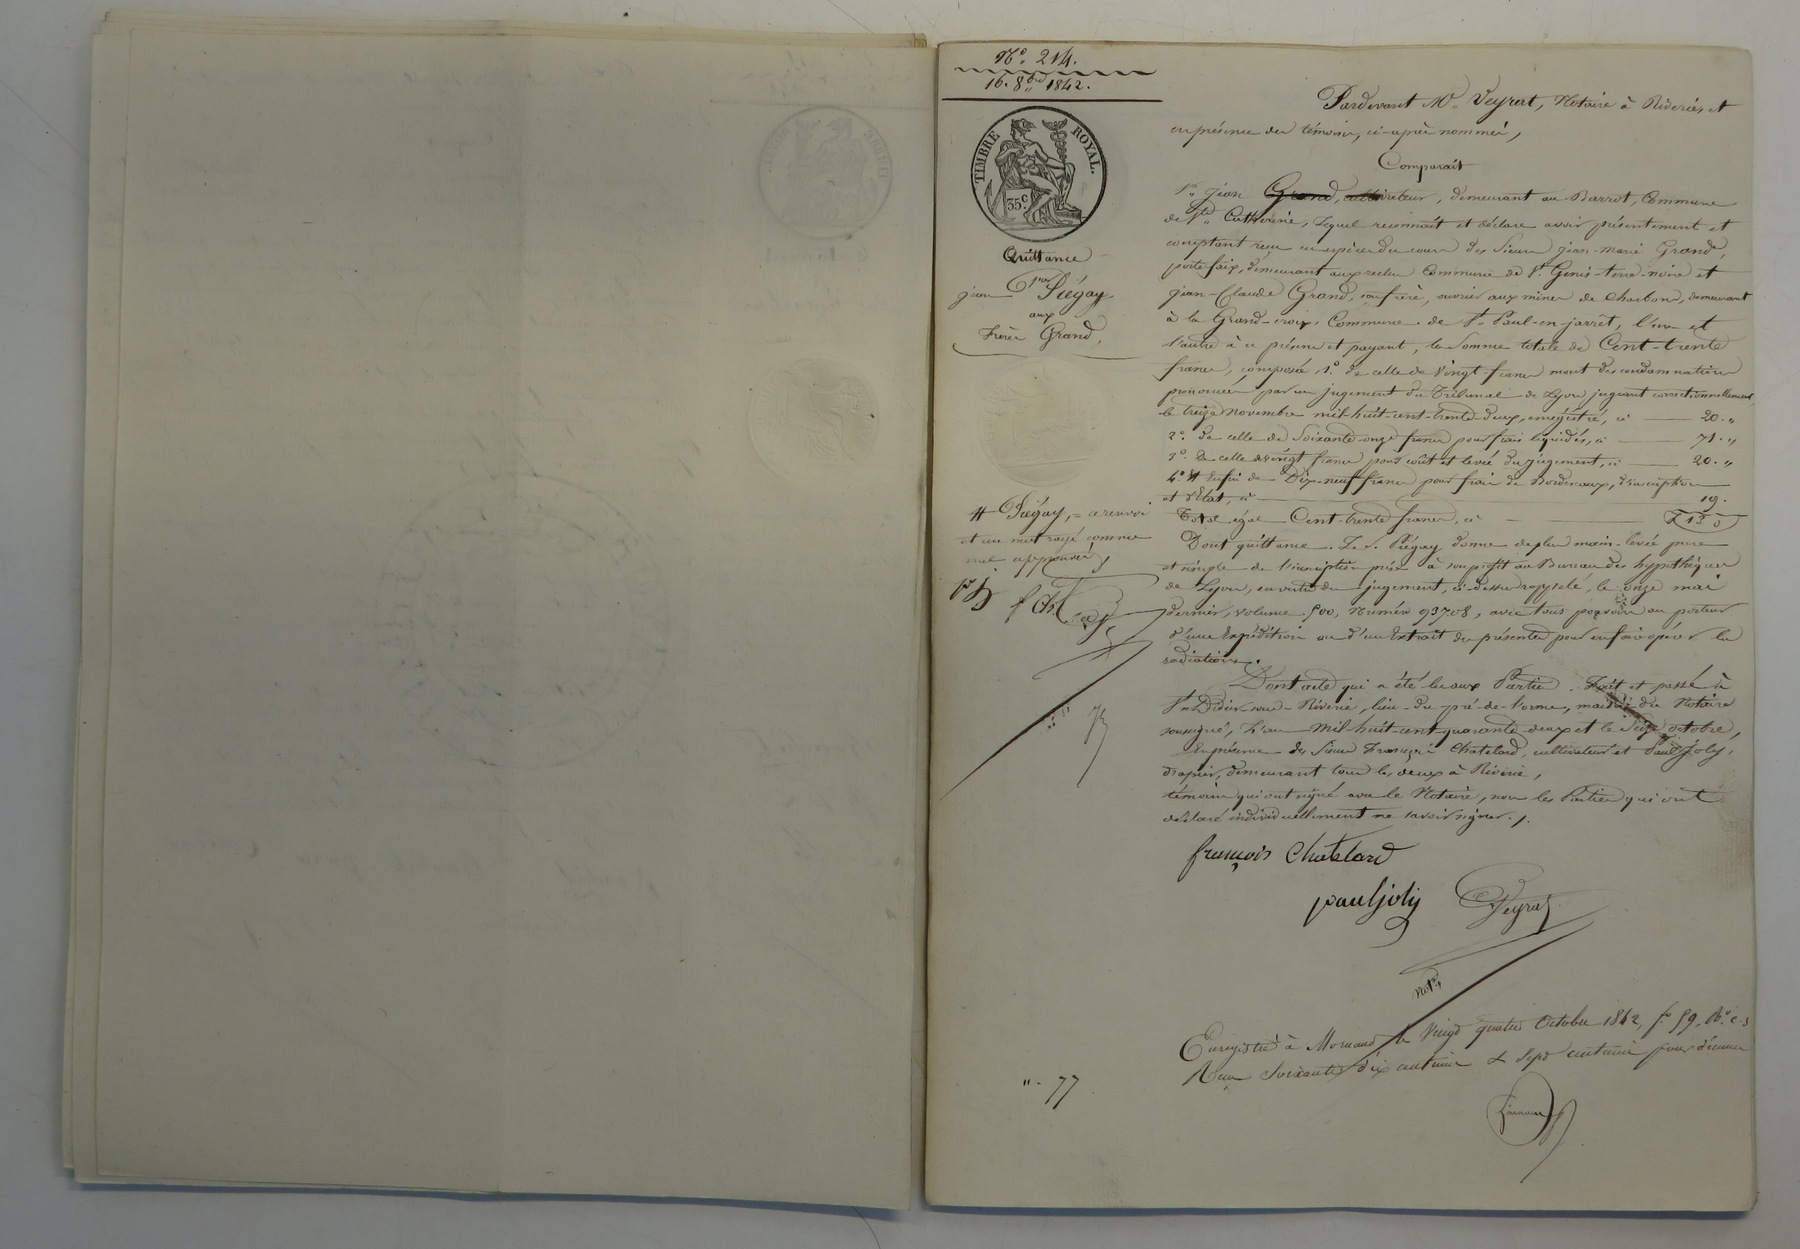 N.° 214.
16. 8bre 1842.
TIMBRE ROYAL.
35c.
Quittance
par
jean Piégay
aux
Frères Grand,
# Piégay, = a renvoi
et un mot rayé comme
nul approuvés,
pJ f Ch
Pardevant Me. Veyrat, Notaire à Riverie, et
en présence des témoins, ci-après nommés,
Comparait
Sr. Jean Grand, cultivateur, demeurant au Barrot, Commune
de Ste. Catherine, Lequel reconnait et déclare avoir présentement et
comptant reçu en espèces du cours des Sieurs Jean-Marie Grand,
portefaix, demeurant aux Commune de St. Genis-terre-noire et
Jean-Claude Grand, son frère, ouvrier aux mines de Charbon, demeurant
à la Grand-croix, Commune de St. Paul-en-jarrêt, l'un et
l'autre à ce présens et payant, la Somme totale de Cent-trente
francs, composée, 1.° de celle de Vingt-francs mont. des condamnations
prononcées par un jugement du Tribunal de Lyon jugeant correctionnellement,
le treize novembre mil-huit-cent-trente-deux, enregistré, ci — 20. "
2.° de celle de Soixante-onze francs pour frais liquidés, ci — 71. "
3.° De celle de vingt francs pour coût et levée du jugement, ci — 20. "
4.° Et Enfin de Dix-neuf francs pour frais de Bordereaux, d'inscription
et d'État, ci — 19.
Total égal Cent-trente francs, ci — 130
Dont quittance. Le S. Piégay donne de plus main-levée pure
et simple de l'inscription prise à son profit au Bureau des hypothèques
de Lyon, en vertu du jugement, ci-dessus rappelé, le onze mai
dernier, volume 500, Numéro 93708, avec tous pouvoirs au porteur
d'une Expédition ou d'un Extrait des présentes pour en faire opérer la
radiation.
Dont acte qui a été lu aux Parties. Fait et passé à
St. Didier-sous-Riverie, lieu-du pré-de-l'orme, maison du Notaire
soussigné, L'an Mil-huit-cent-quarante-deux et le Seize octobre,
En présence des Sieurs François Chatelard, cultivateur et Paul Joly,
drapier, demeurant tous les deux à Riverie,
témoins qui ont signé avec le Notaire, non les Parties qui ont
déclaré individuellement ne savoir signer. /.
françois Chatelard
paul joly Veyrat
notre
Enregistré à Mornant le Vingt quatre Octobre 1842, fo. 59, Ro. c. 3
Reçu Soixante dix centimes & Sept centimes pour décime
". 77